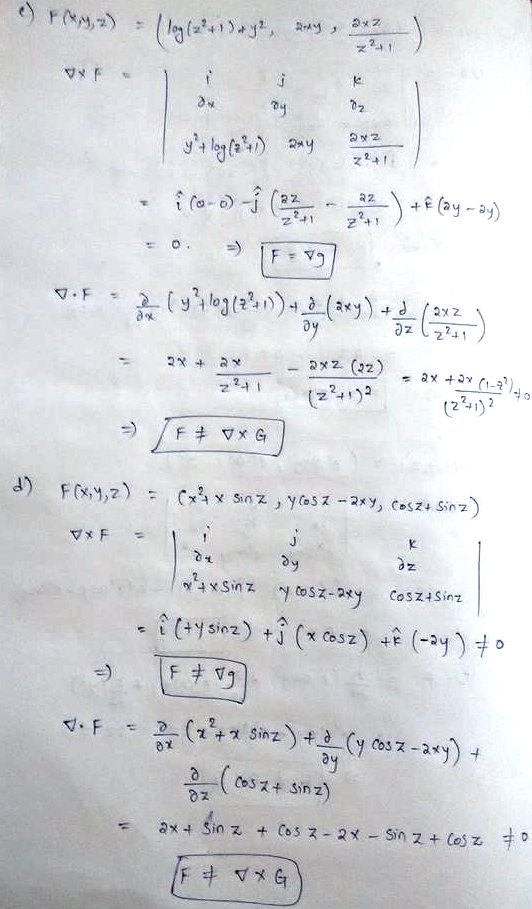 c) F(x,y,z) = (log(z²+1)+y², 2xy, 2xz/(z²+1))
∇×F = | i j k
∂x ∂y ∂z
y²+log(z²+1) 2xy 2xz/(z²+1) |
= î (0-0) - ĵ (2z/(z²+1) - 2z/(z²+1)) + k̂ (2y-2y)
= 0. ⇒ F = ∇g
∇·F = ∂/∂x (y²+log(z²+1)) + ∂/∂y (2xy) + ∂/∂z (2xz/(z²+1))
= 2x + 2x/(z²+1) - 2xz(2z)/(z²+1)² = 2x + 2x(1-z²)/(z²+1)² ≠ 0
⇒ F ≠ ∇×G
d) F(x,y,z) = (x²+x sinz, y cosz - 2xy, cosz + sinz)
∇×F = | i j k
∂x ∂y ∂z
x²+x sinz y cosz-2xy cosz+sinz |
= î (+y sinz) + ĵ (x cosz) + k̂ (-2y) ≠ 0
⇒ F ≠ ∇g
∇·F = ∂/∂x (x²+x sinz) + ∂/∂y (y cosz - 2xy) +
∂/∂z (cosz + sinz)
= 2x + sinz + cosz - 2x - sinz + cosz ≠ 0
F ≠ ∇×G